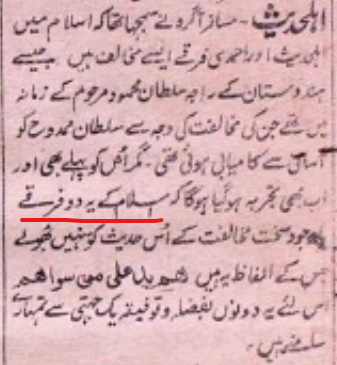 اہلحدیث۔ مسافر آگرہ نے سمجھا تھا کہ اسلام میں
اہلحدیث اور احمدی فرقے ایسے مخالف ہیں جیسے
ہندوستان کے راجہ سلطان محمود مرحوم کے زمانہ
میں تھے جن کی مخالفت کی وجہ سے سلطان ممدوح کو
آسانی سے کامیابی ہوئی تھی۔ مگر اُس کو پہلے بھی اور
اب بھی تجربہ ہوگیا ہوگا کہ اسلام کے یہ دو فرقے
باوجود سخت مخالفت کے اُس حدیث کو نہیں بھولے
جس کے الفاظ یہ ہیں ھم ید علی من سواھم
اس لئے یہ دونوں بفضلہ و توفیقہ یک جہتی سے تمہارے
سامنے ہیں۔